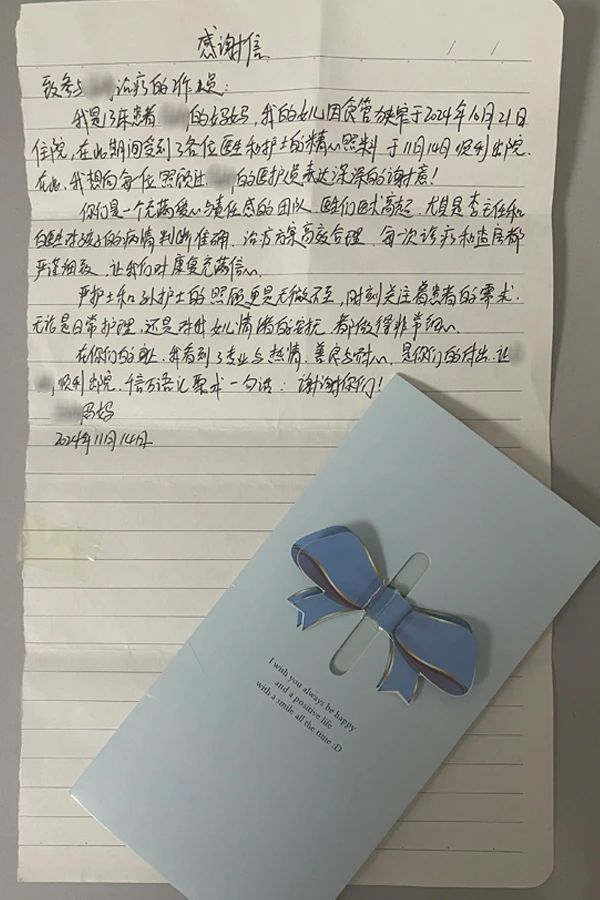 感谢信
/ /
致参与 治疗的工作人员：
我是13床患者 的妈妈，我的女儿因食管狭窄于2024年10月21日
住院，在此期间受到了各位医生和护士的精心照料，于11月14日顺利出院.
在此，我想向每一位照顾过 的医护人员表达深深的谢意！
你们是一个充满爱心与责任感的团队，医生们医术高超，尤其是李主任和
白医生对孩子的病情判断准确，治疗方案高效合理，每一次诊疗和查房都
严谨细致，让我们对康复充满信心.
严护士和孙护士的照顾更是无微不至，时刻关注着患者的需求.
无论是日常护理，还是对我女儿情绪的安抚，都做得非常细心.
在你们的身上，我看到了专业与热情，善良与耐心，是你们的付出，让
，顺利出院，千言万语汇聚成一句话：谢谢你们！
妈妈
2024年11月14日
I wish you always be happy
and a positive life
with a smile all the time :D